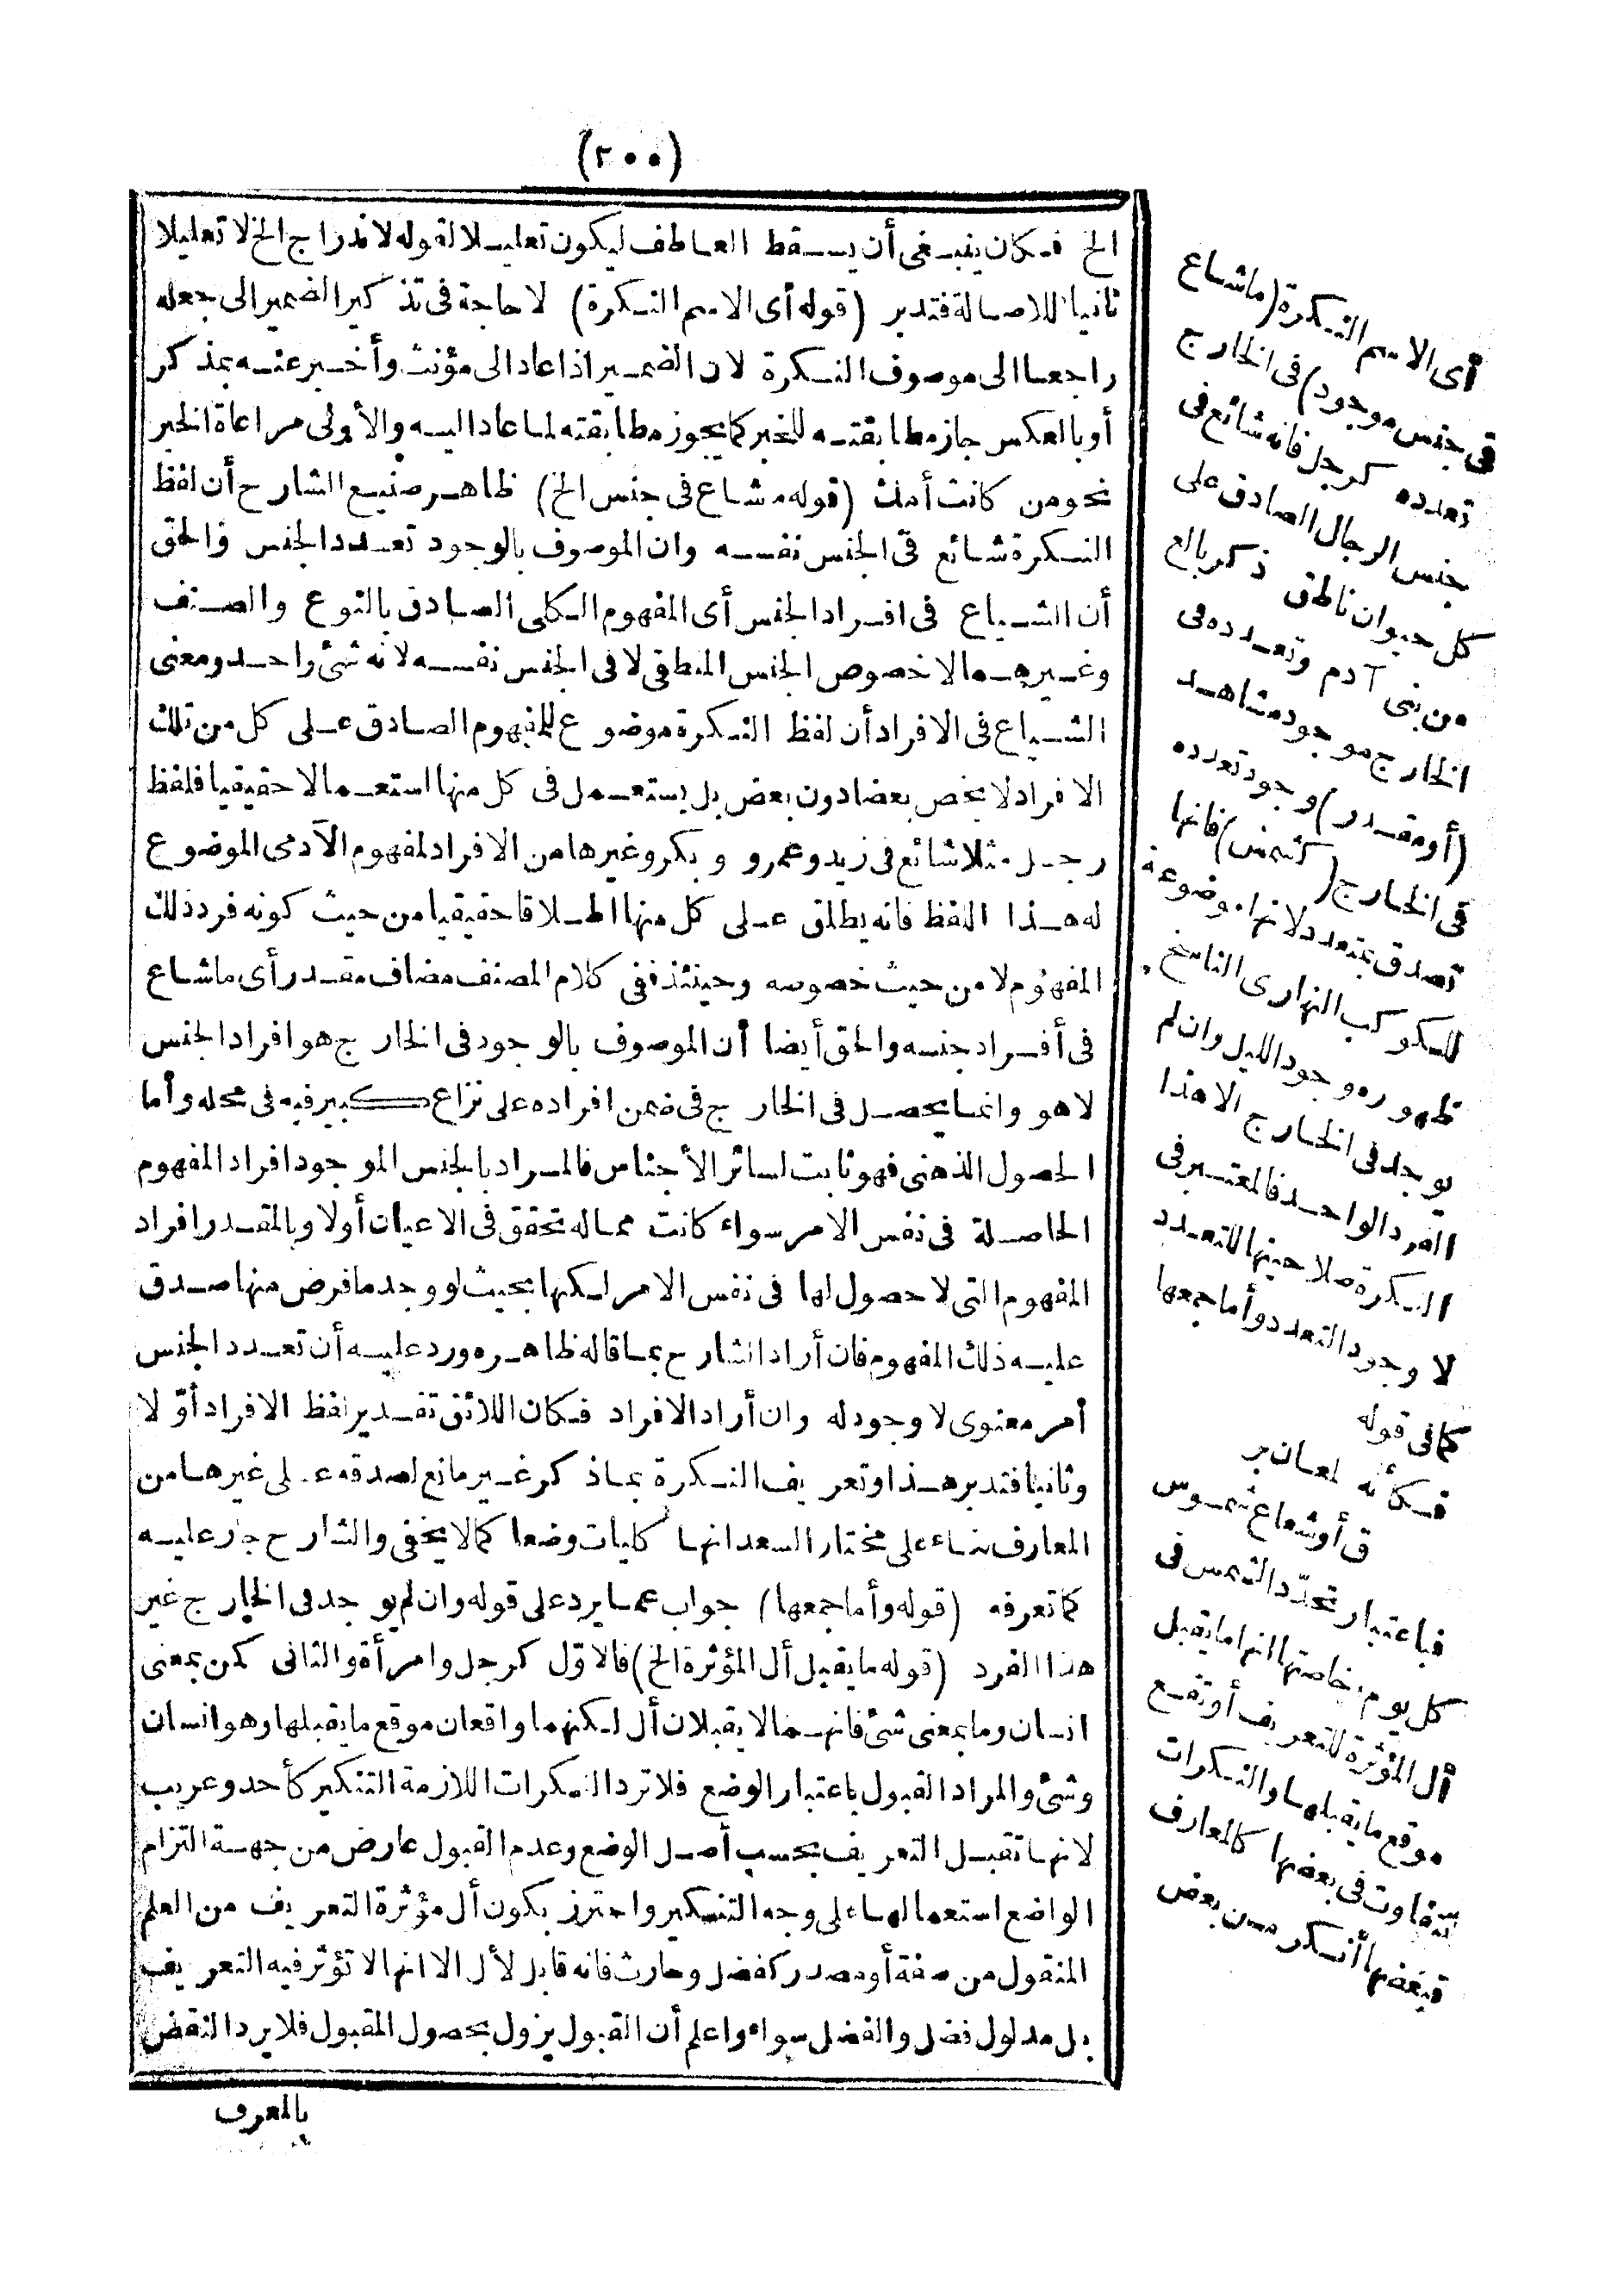 (٢٠٠)
الخ فكان ينبغى أن يسقط العاطف ليكون تعليلا لقوله لاندراج الخ لا تعليلا
ثانيا للاصالة فتدبر (قوله أى الاسم النكرة) لا حاجة فى تذكير الضمير الى جعله
راجعا الى موصوف النكرة لان الضمير اذا عاد الى مؤنث وأخبر عنه بمذكر
أو بالعكس جاز مطابقته للخبر كما يجوز مطابقته لما عاد اليه والأولى مراعاة الخبر
نحو من كانت أمك (قوله ما شاع فى جنس الخ) ظاهر صنيع الشارح أن لفظ
النكرة شائع فى الجنس نفسه وان الموصوف بالوجود تعدد الجنس والحق
أن الشياع فى افراد الجنس أى المفهوم الكلى الصادق بالنوع والصنف
وغيرهما لا خصوص الجنس المنطقى لا فى الجنس نفسه لانه شئ واحد ومعنى
الشياع فى الافراد أن لفظ النكرة موضوع للمفهوم الصادق على كل من تلك
الافراد لا يخص بعضا دون بعض بل يستعمل فى كل منها استعمالا حقيقيا فلفظ
رجل مثلا شائع فى زيد وعمرو وبكر وغيرها من الافراد لمفهوم الآدمى الموضوع
له هذا اللفظ فانه يطلق على كل منها اطلاقا حقيقيا من حيث كونه فرد ذلك
المفهوم لا من حيث خصوصه وحينئذ ففى كلام المصنف مضاف مقدر أى ما شاع
فى أفراد جنسه والحق أيضا أن الموصوف بالوجود فى الخارج هو افراد الجنس
لا هو وانما يحصل فى الخارج فى ضمن افراده على نزاع كبير فيه فى محله وأما
الحصول الذهنى فهو ثابت لسائر الأجناس فالمراد بالجنس الموجود افراد المفهوم
الحاصلة فى نفس الامر سواء كانت مما له تحقق فى الاعيان أو لا وبالمقدر افراد
المفهوم التى لا حصول لها فى نفس الامر لكنها بحيث لو وجد ما فرض منها صدق
عليه ذلك المفهوم فان أراد الشارح بما قاله ظاهره ورد عليه أن تعدد الجنس
أمر معنوى لا وجود له وان أراد الافراد فكان اللائق تقدير لفظ الافراد أوّلا
وثانيا فتدبر هذا وتعريف النكرة بما ذكر غير مانع لصدقه على غيرها من
المعارف بناء على مختار السعد انها كليات وضعا كما لا يخفى والشارح جار عليه
كما تعرفه (قوله وأما جمعها) جواب عما يرد على قوله وان لم يوجد فى الخارج غير
هذا الفرد (قوله ما يقبل أل المؤثرة الخ) فالاوّل كرجل وامرأة والثانى كمن بمعنى
انسان وما بمعنى شئ فانهما لا يقبلان أل لكنهما واقعان موقع ما يقبلها وهو انسان
وشئ والمراد القبول باعتبار الوضع فلا ترد النكرات اللازمة التنكير كأحد وعريب
لانها تقبل التعريف بحسب أصل الوضع وعدم القبول عارض من جهة التزام
الواضع استعمالها على وجه التنكير واحترز بكون أل مؤثرة التعريف من العلم
المنقول من صفة أو مصدر كفضل وحارث فانه قابل لأل الا انها لا تؤثر فيه التعريف
بل مدلول فضل والفضل سواء واعلم أن القبول يزول بحصول المقبول فلا يرد النقض
بالمعرف
أى الاسم النكرة (ما شاع
فى جنس موجود) فى الخارج
تعدده كرجل فانه شائع فى
جنس الرجال الصادق على
كل حيوان ناطق ذكر بالغ
من بنى آدم وتعدده فى
الخارج موجود مشاهد
(أو مقدر) وجود تعدده
فى الخارج (كشمس) فانها
تصدق بمتعدد لانها موضوعة
للكوكب النهارى الناسخ
ظهوره وجود الليل وان لم
يوجد فى الخارج الا هذا
الفرد الواحد فالمعتبر فى
النكرة صلاحيتها للتعدد
لا وجود التعدد وأما جمعها
كما فى قوله
فكأنه لمعان بر
ق أو شعاع شموس
فباعتبار تجدّد الشمس فى
كل يوم خاصتها انها ما يقبل
أل المؤثرة للتعريف أو تقع
موقع ما يقبلها والنكرات
تتفاوت فى بعضها كالمعارف
فبعضها أنكر من بعض